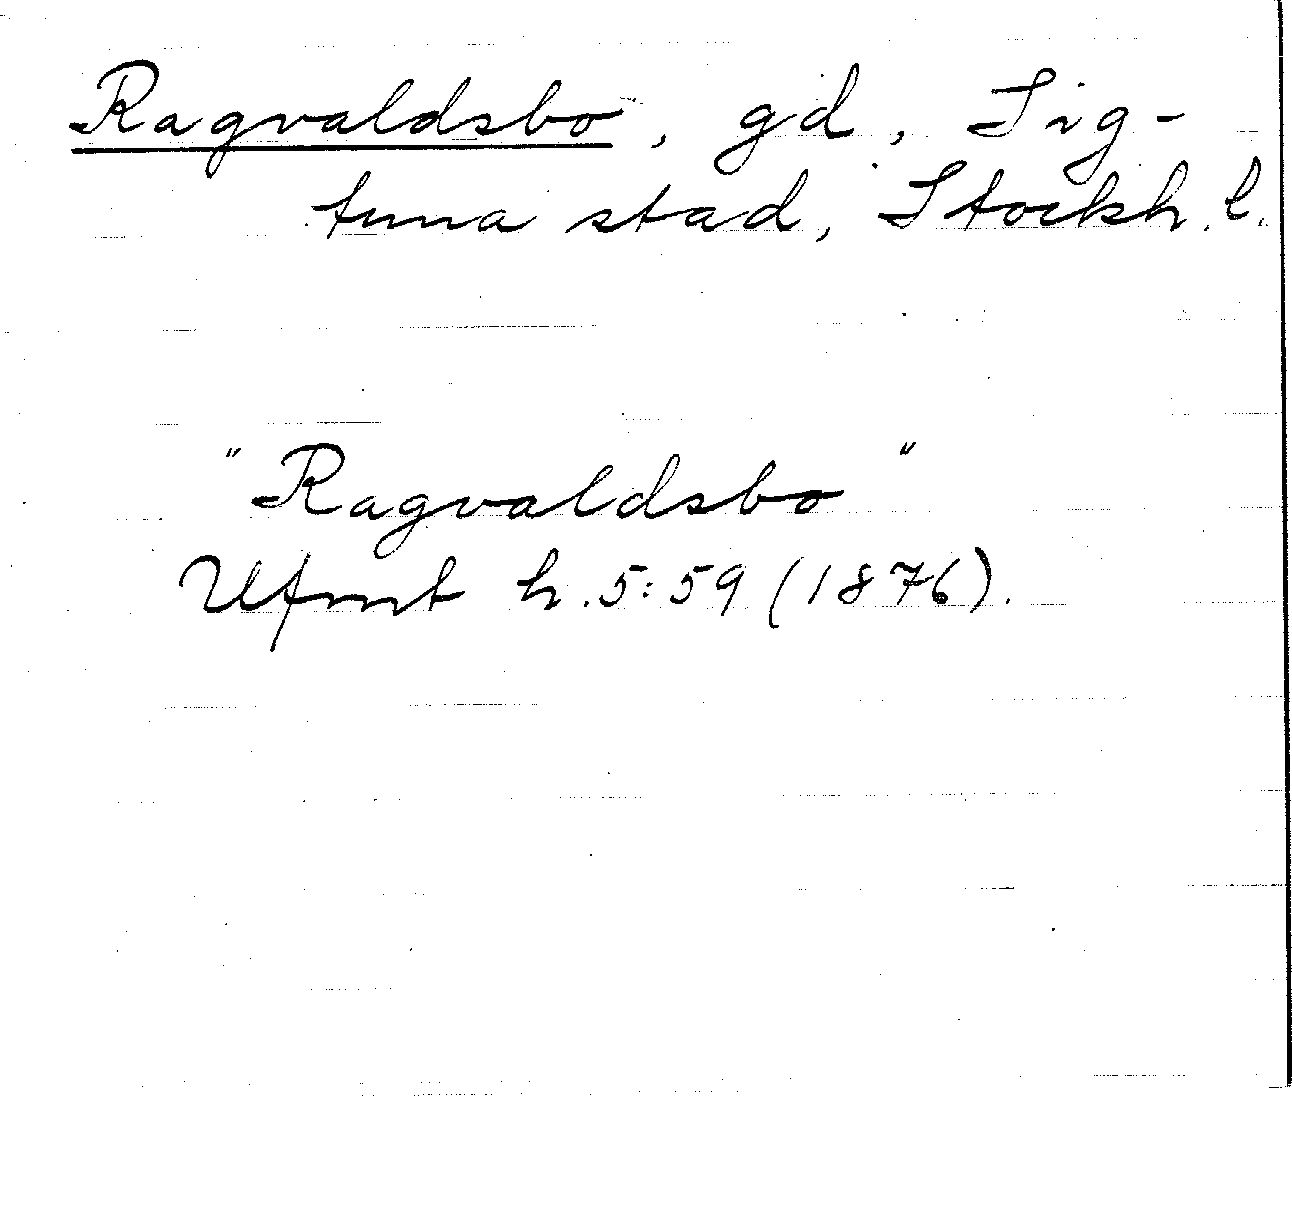 Ragvaldsbo, gd, Sig-
tuna stad, Stockh. l.
"Ragvaldsbo"
Ufmt h. 5:59 (1876).